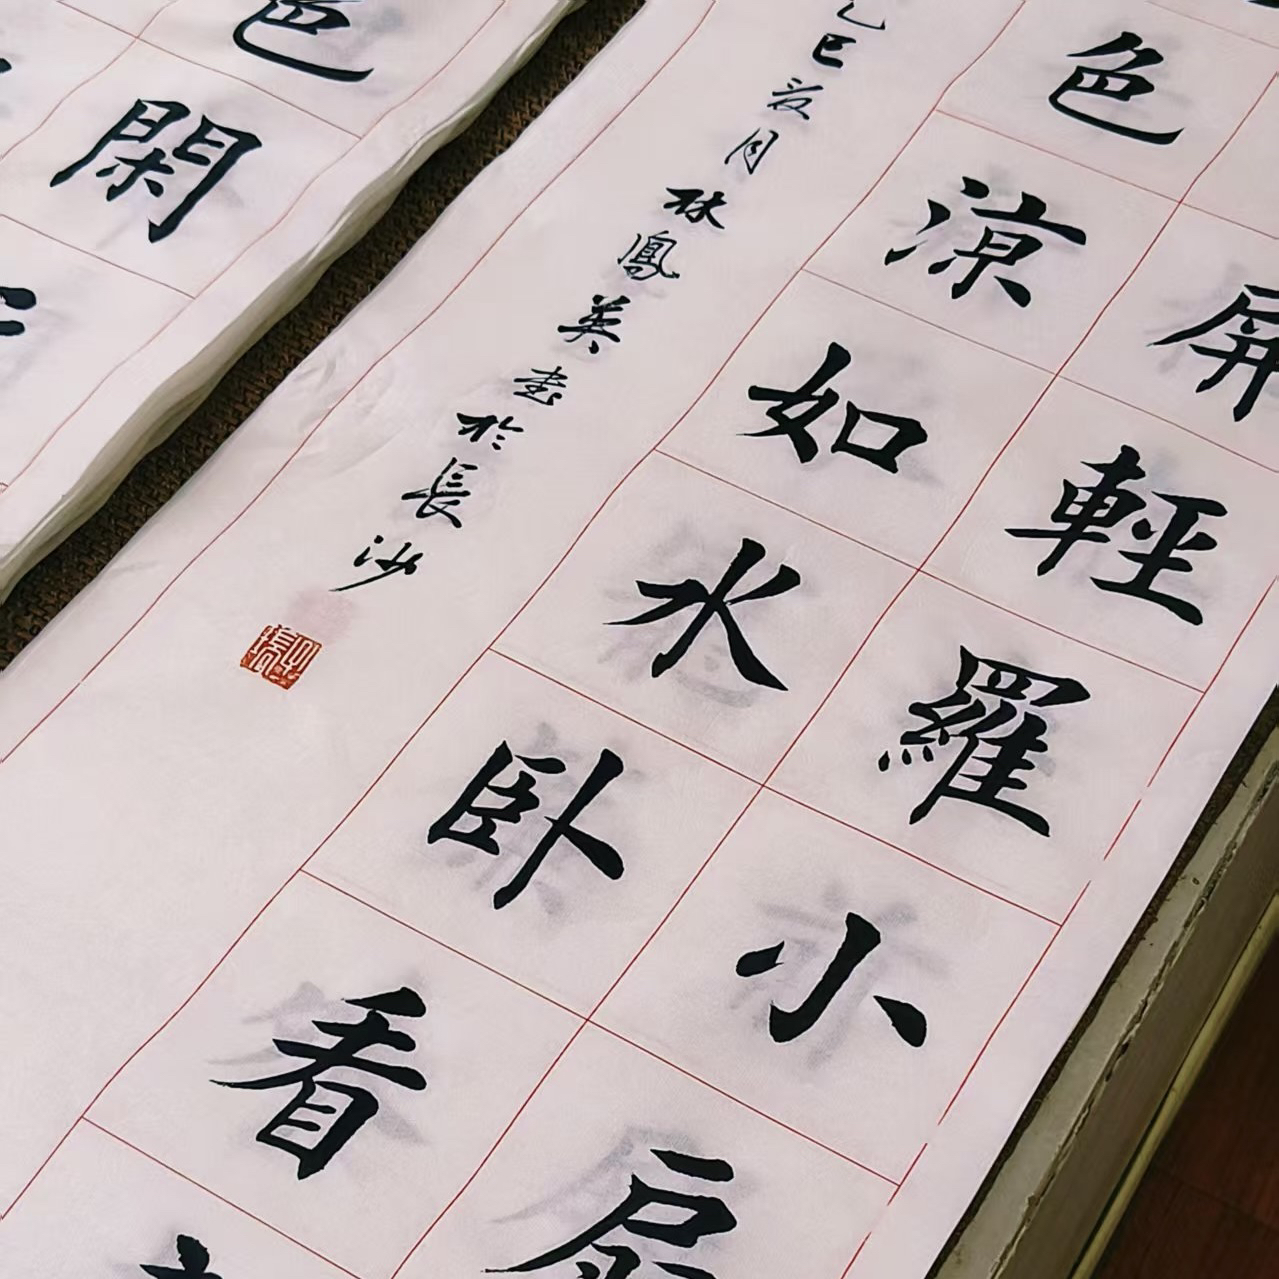 屏輕羅小扇
色涼如水卧看
乙巳荷月林鳳英書於長沙
色閑